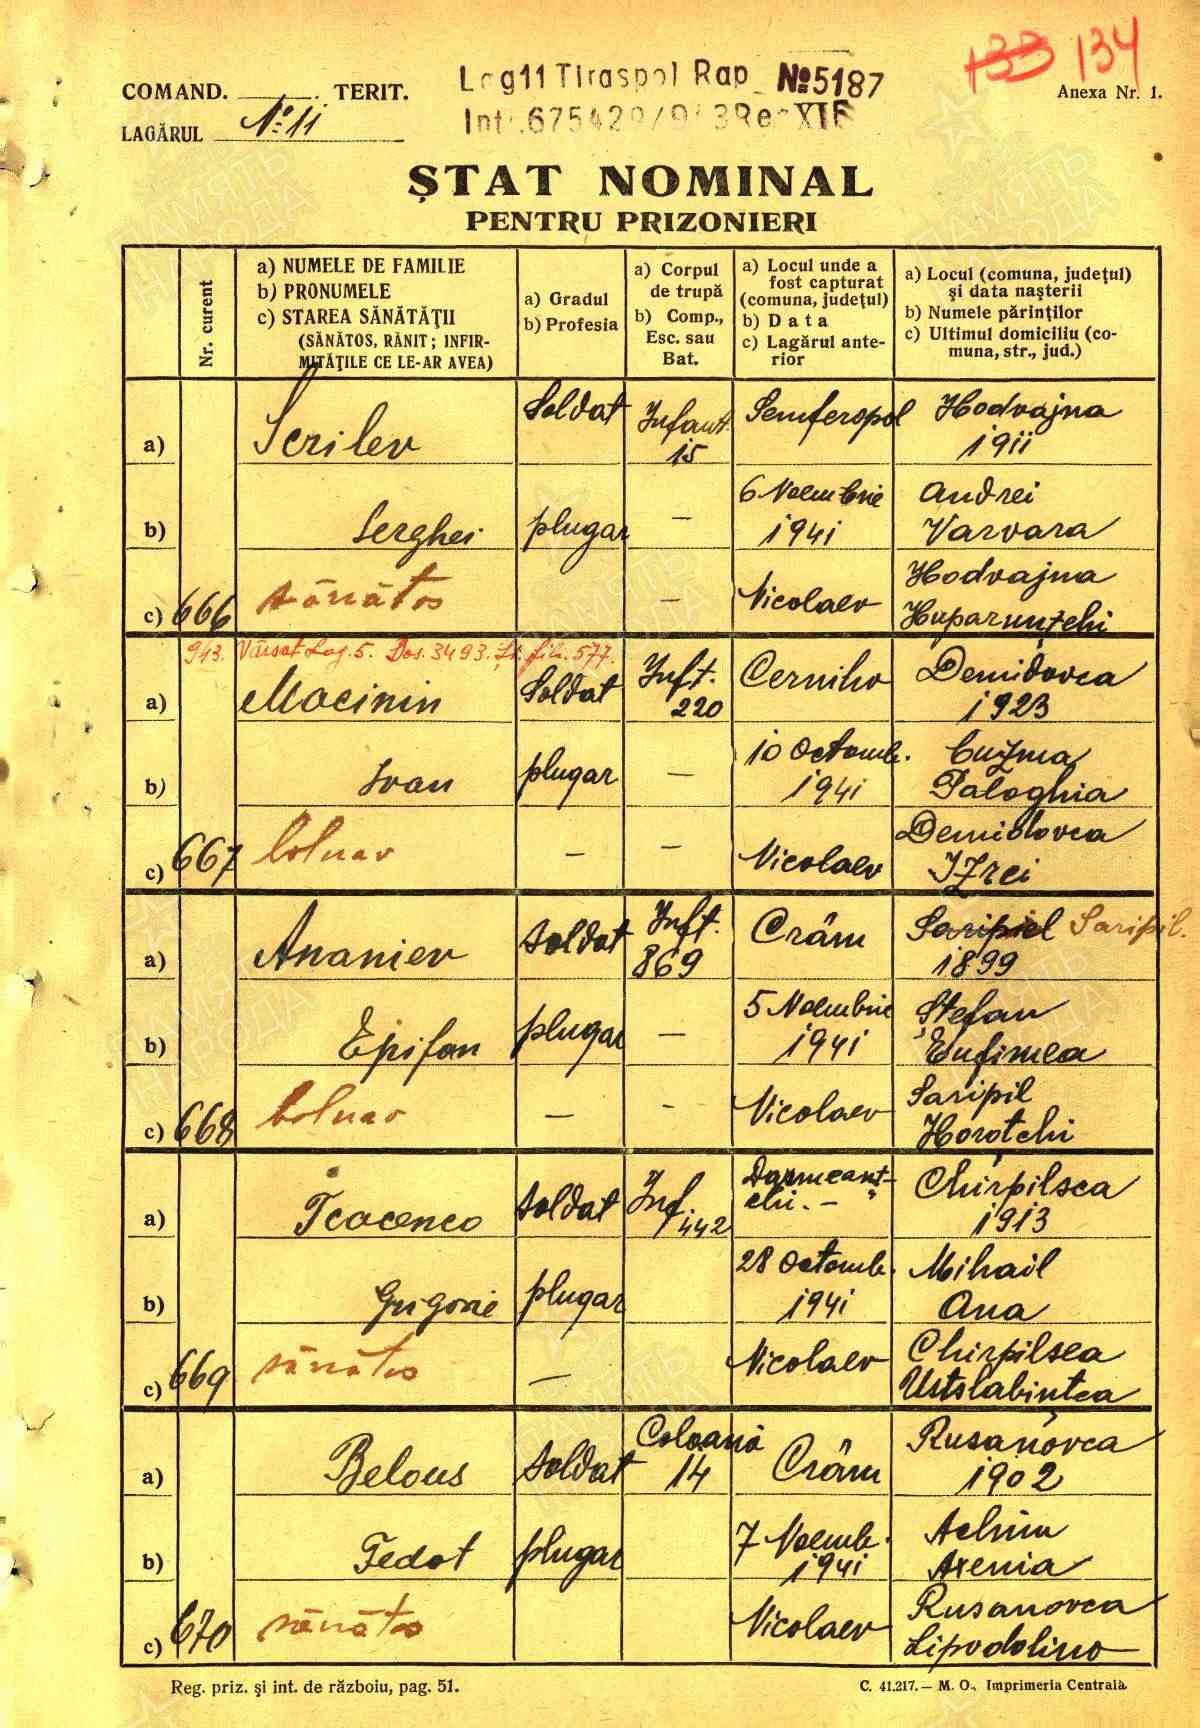 133 134
COMAND. TERIT.
Lag11 Tiraspol Rap № 5187
Anexa Nr. 1.
LAGĂRUL № 11
ȘTAT NOMINAL
PENTRU PRIZONIERI
Nr. curent
a) NUMELE DE FAMILIE
b) PRONUMELE
c) STAREA SĂNĂTĂȚII
(SĂNĂTOS, RĂNIT; INFIR-
MITĂȚILE CE LE-AR AVEA)
a) Gradul
b) Profesia
a) Corpul
de trupă
b) Comp.,
Esc. sau
Bat.
a) Locul unde a
fost capturat
(comuna, județul)
b) Data
c) Lagărul ante-
rior
a) Locul (comuna, județul)
și data nașterii
b) Numele părinților
c) Ultimul domiciliu (co-
muna, str., jud.)
a) Scrilev Soldat Infant. 15 Semferopol Hodvajna 1911
b) Serghei plugar — 6 Noembrie 1941 Andrei Varvara
c) 666 sănătos — Nicolaev Hodvajna
943. Vărsat Lag. 5. Dos. 3493. fila. 577.
a) Macinin Soldat Inft. 220 Cerniho Demidovca 1923
b) Ivan plugar — 10 Octomb. 1941 Cuzma Paloghia
c) 667 bolnav — — Nicolaev Demidovca Izrei
a) Ananiev soldat Inft. 869 Crâm Saripiel Saripil. 1899
b) Epifan plugar — 5 Noembrie 1941 Ștefan Eufimea
c) 668 bolnav — - Nicolaev Saripil Horotchi
a) Tcacenco soldat Inf. 442 Chirpilsca 1913
b) Grigorie plugar 28 Octomb. 1941 Mihail Ana
c) 669 sănătos — Nicolaev Chirpilsea Ustslabințea
a) Belous soldat Coloană 14 Crâm Rusanovca 1902
b) Fedot plugar 7 Noemb. 1941 Achim Axenia
c) 670 sănătos Nicolaev Rusanovca Lipodolino
Reg. priz. și int. de războiu, pag. 51.
C. 41.217. — M. O., Imprimeria Centrală.
ПАМЯТЬ НАРОДА